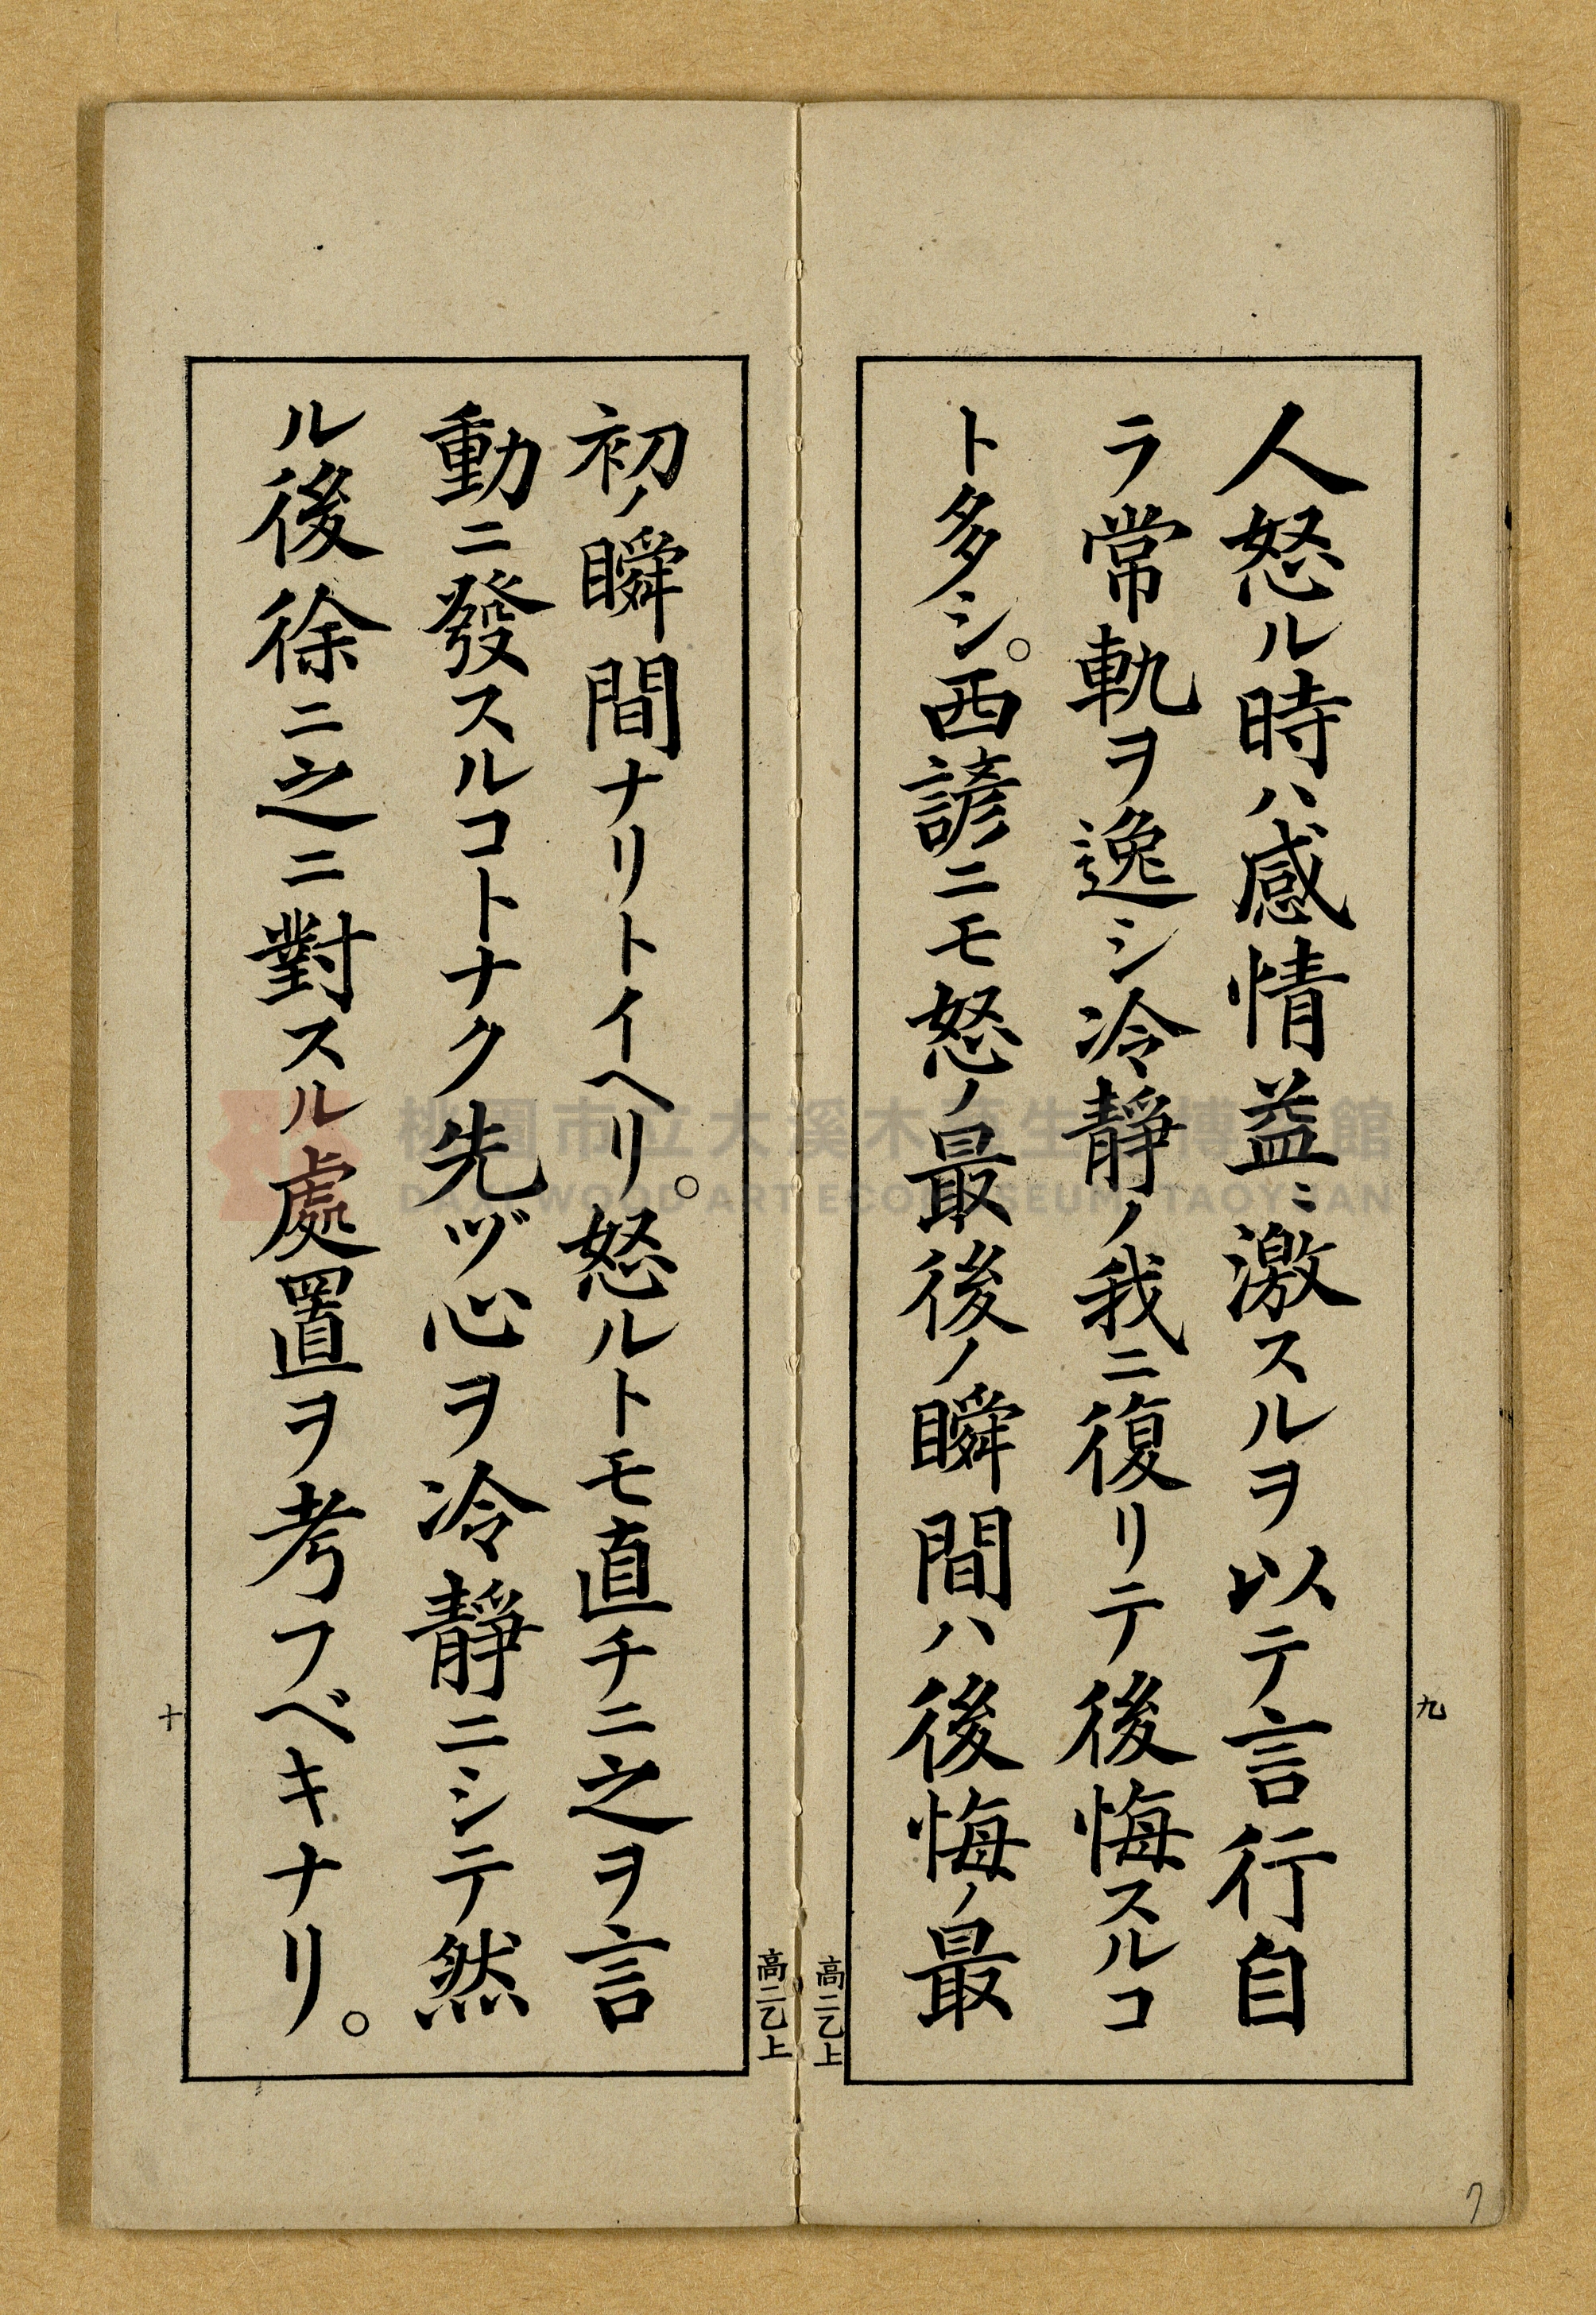 人怒ル時ハ感情益〻激スルヲ以テ言行自
ラ常軌ヲ逸シ冷靜ノ我ニ復リテ後悔スルコ
ト多シ。西諺ニモ怒ノ最後ノ瞬間ハ後悔ノ最
九
高二乙上
初ノ瞬間ナリトイヘリ。怒ルトモ直チニ之ヲ言
動ニ發スルコトナク先ヅ心ヲ冷靜ニシテ然
ル後徐ニ之ニ對スル處置ヲ考フベキナリ。
十
高二乙上
7
桃園市立大溪木藝生態博物館
DAXI WOOD ART ECOMUSEUM, TAOYUAN